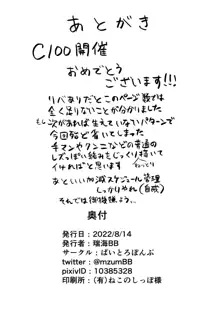 あとがき
C100開催
おめでとう
ございます!!!
リバありだとこのページ数では
全く足りないことが分かりました
次があれば生えていないパターンで
今回殆ど省いてしまった
手マンやクンニなどの普通の
レズっぽい絡みをじっくり描いて
イければと思います
あといい加減スケジュール管理
しっかりやれ(自戒)
それでは御機嫌よう…
奥付
発行日:2022/8/14
発行者:瑞海BB
サークル:ぱいとろぼんぷ
twitter:@mzumBB
pixivID:10385328
印刷所:(有)ねこのしっぽ様